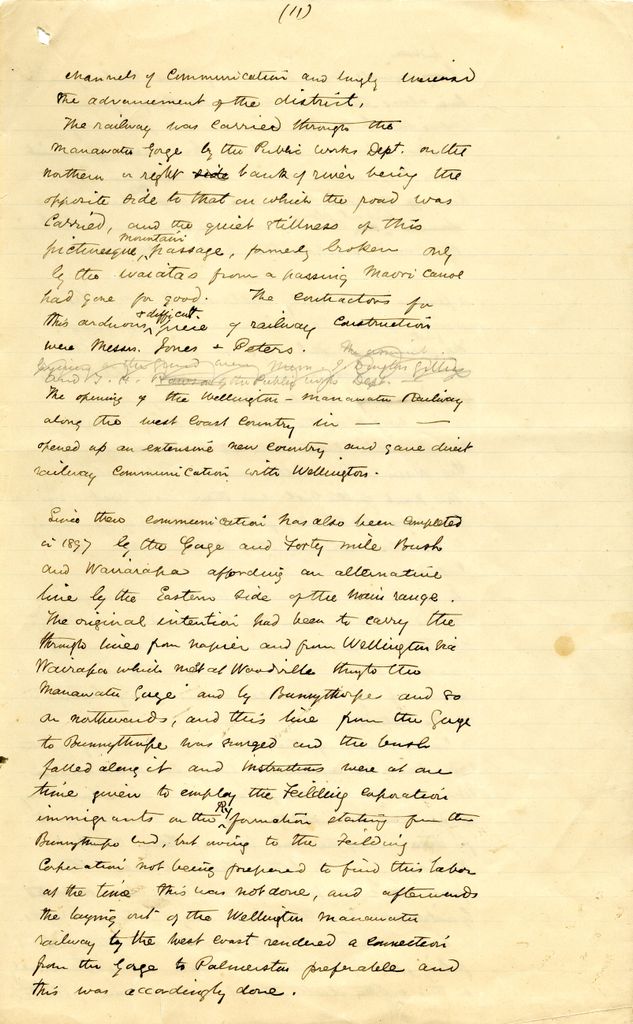 (11)
channels of communication and largely increased
the advancement of the district.
The railway was carried through the
Manawatu Gorge by the Public Works Dept. on the
northern or right side bank of river being the
opposite side to that on which the road was
carried, and the quiet stillness of this
picturesque mountain passage, formerly broken only
by the waiatas from a passing Maori canoe
had gone for good. The contractors for
this arduous & difficult piece of railway construction
were Messrs. Jones & Peters. The
of the
and J. H. of the Public Works Dept.
The opening of the Wellington - Manawatu Railway
along the West Coast Country in — —
opened up an extensive new country and gave direct
railway communication with Wellington.
Since then communication has also been completed
in 1897 by the Gorge and Forty mile Bush
and Wairarapa affording an alternative
line by the Eastern side of the main range.
The original intention had been to carry the
through lines from Napier and from Wellington via
Wairapa which met at Woodville through the
Manawatu Gorge and by Bunnythorpe and so
on northwards, and this line from the Gorge
to Bunnythorpe was surveyed and the bush
falled along it and instructions were at one
time given to employ the Feilding Corporation
immigrants on the Ry formation starting from the
Bunnythorpe end, but owing to the Feilding
Corporation not being prepared to find this labor
at the time this was not done, and afterwards
the laying out of the Wellington Manawatu
railway by the West Coast rendered a connection
from the Gorge to Palmerston preferable and
this was accordingly done.